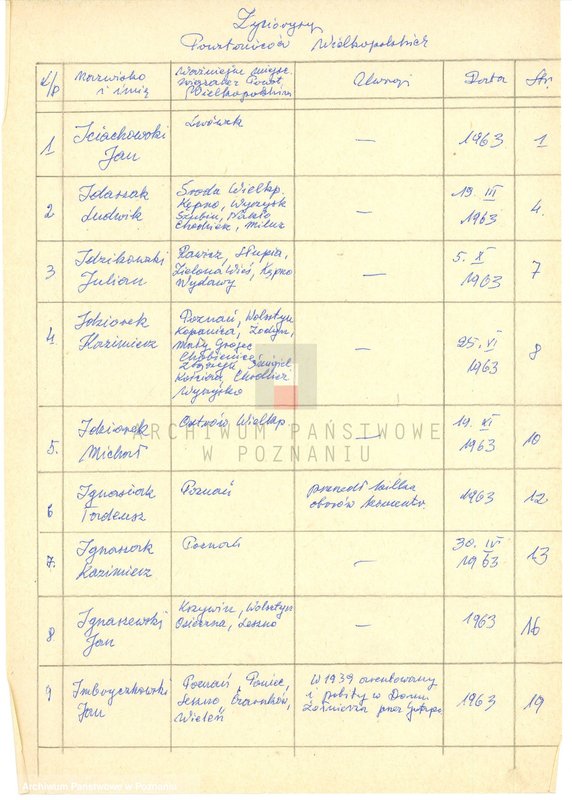 Życiorysy
Powstańców Wielkopolskich
L/p
Nazwisko
i imię
Ważniejsze miejsc.
Powst.
Wielkopolskim
Uwagi
Data
Str.
1
Iciachowski
Jan
Lwówek
—
1963
1
2
Idaszak
Ludwik
Środa Wielkp.
Kępno, Wyrzysk
Szubin, Nakło
Chodzież,
—
19. III
1963
4.
3
Idzikowski
Julian
Rawicz, Słupia,
Zielona Wieś, Kępno
Wydawy
—
5. XI
1963
7
4.
Idziorek
Kazimierz
Poznań, Wolsztyn
Kopanica, Żodyń,
Mały Grójec
Chobienice
Zbąszyń
Kościan, Chodzież
Wyrzysko
—
25. VI
1963
8
5.
Idziorek
Michał
Ostrów, Wielkp
—
14. XI
1963
10
6
Ignasiak
Tadeusz
Poznań
przeszedł kilka
obozów koncentr.
1963
12
7.
Ignaszak
Kazimierz
Poznań
—
30. IV
1963
13
8
Ignaszewski
Jan
Krzywin, Wolsztyn
Osieczna, Leszno
—
1963
16
9
Imbryczkowski
Jan
Poznań, Poniec,
Leszno, Czarnków,
Wieleń
W 1939 aresztowany
i pobity w Domu
Żołnierza przez Gestapo
1963
19
ARCHIWUM PAŃSTWOWE
W POZNANIU
Archiwum Państwowe w Poznaniu